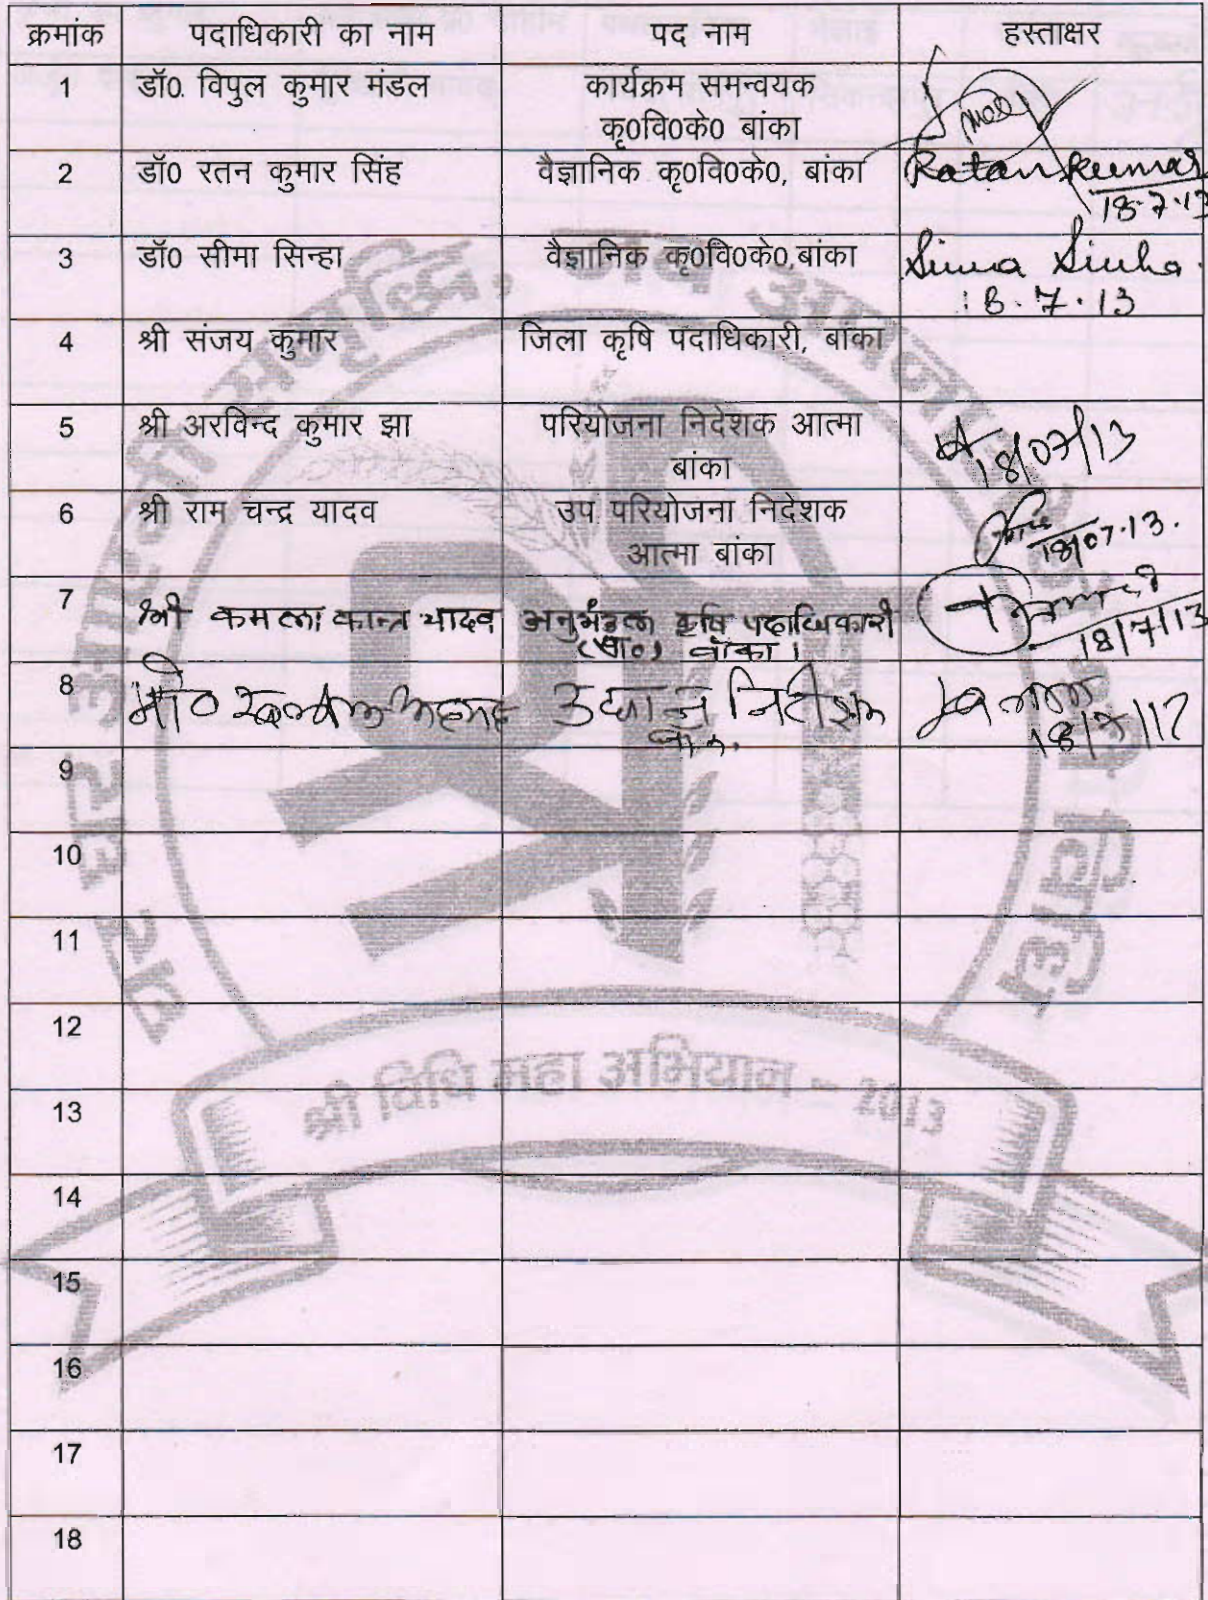 क्रमांक पदाधिकारी का नाम पद नाम हस्ताक्षर
1 डॉ0. विपुल कुमार मंडल कार्यक्रम समन्वयक
कृ0वि0के0 बांका
2 डॉ0 रतन कुमार सिंह वैज्ञानिक कृ0वि0के0, बांका Ratan Kumar
18.7.13
3 डॉ0 सीमा सिन्हा वैज्ञानिक कृ0वि0के0,बांका Sima Sinha
18.7.13
4 श्री संजय कुमार जिला कृषि पदाधिकारी, बांका
5 श्री अरविन्द कुमार झा परियोजना निदेशक आत्मा
बांका 18/07/13
6 श्री राम चन्द्र यादव उप परियोजना निदेशक
आत्मा बांका 18/07.13.
7 श्री कमला कान्त यादव अनुमंडल कृषि पदाधिकारी
बांका। 18/7/13
8 मो0 उद्यान
9
10
11
12
13
14
15
16
17
18
घर घर आएगी समृद्धि, जब अपनाएंगे श्री विधि
श्री विधि महा अभियान